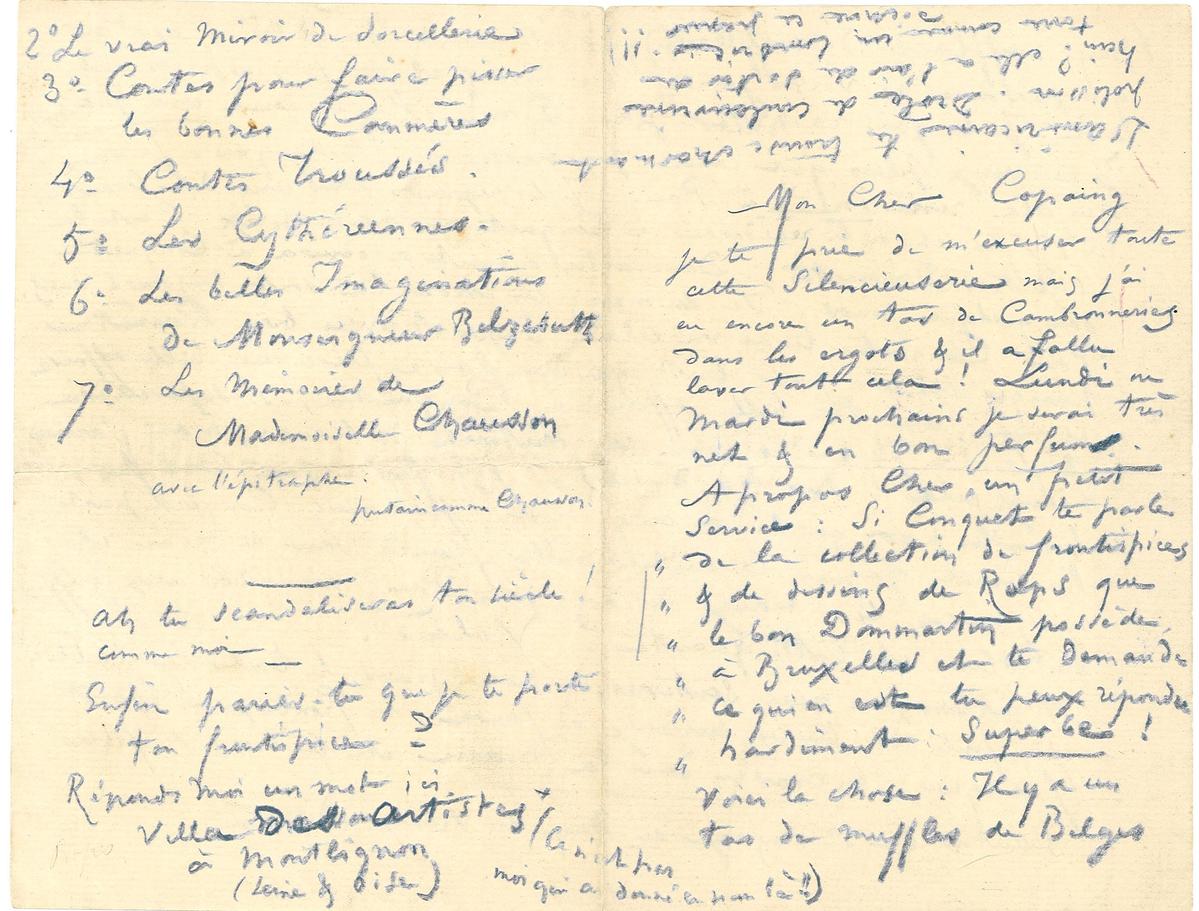 Mon Cher Copaing
je te prie de m'excuser toute
cette Silencieuserie mais j'ai
eu encore un tas de Cambronneries
dans les ergots & il a fallu
laver tout cela ! Lundi ou
Mardi prochains je serai très
net & en bon parfum.
A propos Cher, un petit
Service : Si Conquet te parle
" de la collection de frontispices
" & de dessins de Rops que
" le bon Dommartin possède,
" à Bruxelles et te demande
" ce qui en est tu peux répondre
" hardiment : Superbe !
Voici la chose : Il y a un
tas de muffles de Belges
L'américaine te trouve charmant
polisson. Drôles de couturières
hein? elle a l'air de sortir du
comme un !!!
2º Le vrai Miroir de Sorcellerie
3º Contes pour faire pisser
les bonnes Commères
4º Contes Troussés.
5º Les Cythéreennes.
6º Les belles Imaginations
de Monseigneur Belzebuth
7º Les Mémoires de
Mademoiselle Chausson
avec l'épitaphe :
putain comme Chausson.
Ah tu scandaliseras ton siècle !
comme moi
Enfin que je te porte
ton frontispice ?
Réponds moi un mot ici,
Villa Des Artistes
à Montlignon
(Seine & Oise)
(Ce n'est pas
moi qui a donné ce nom là !!)